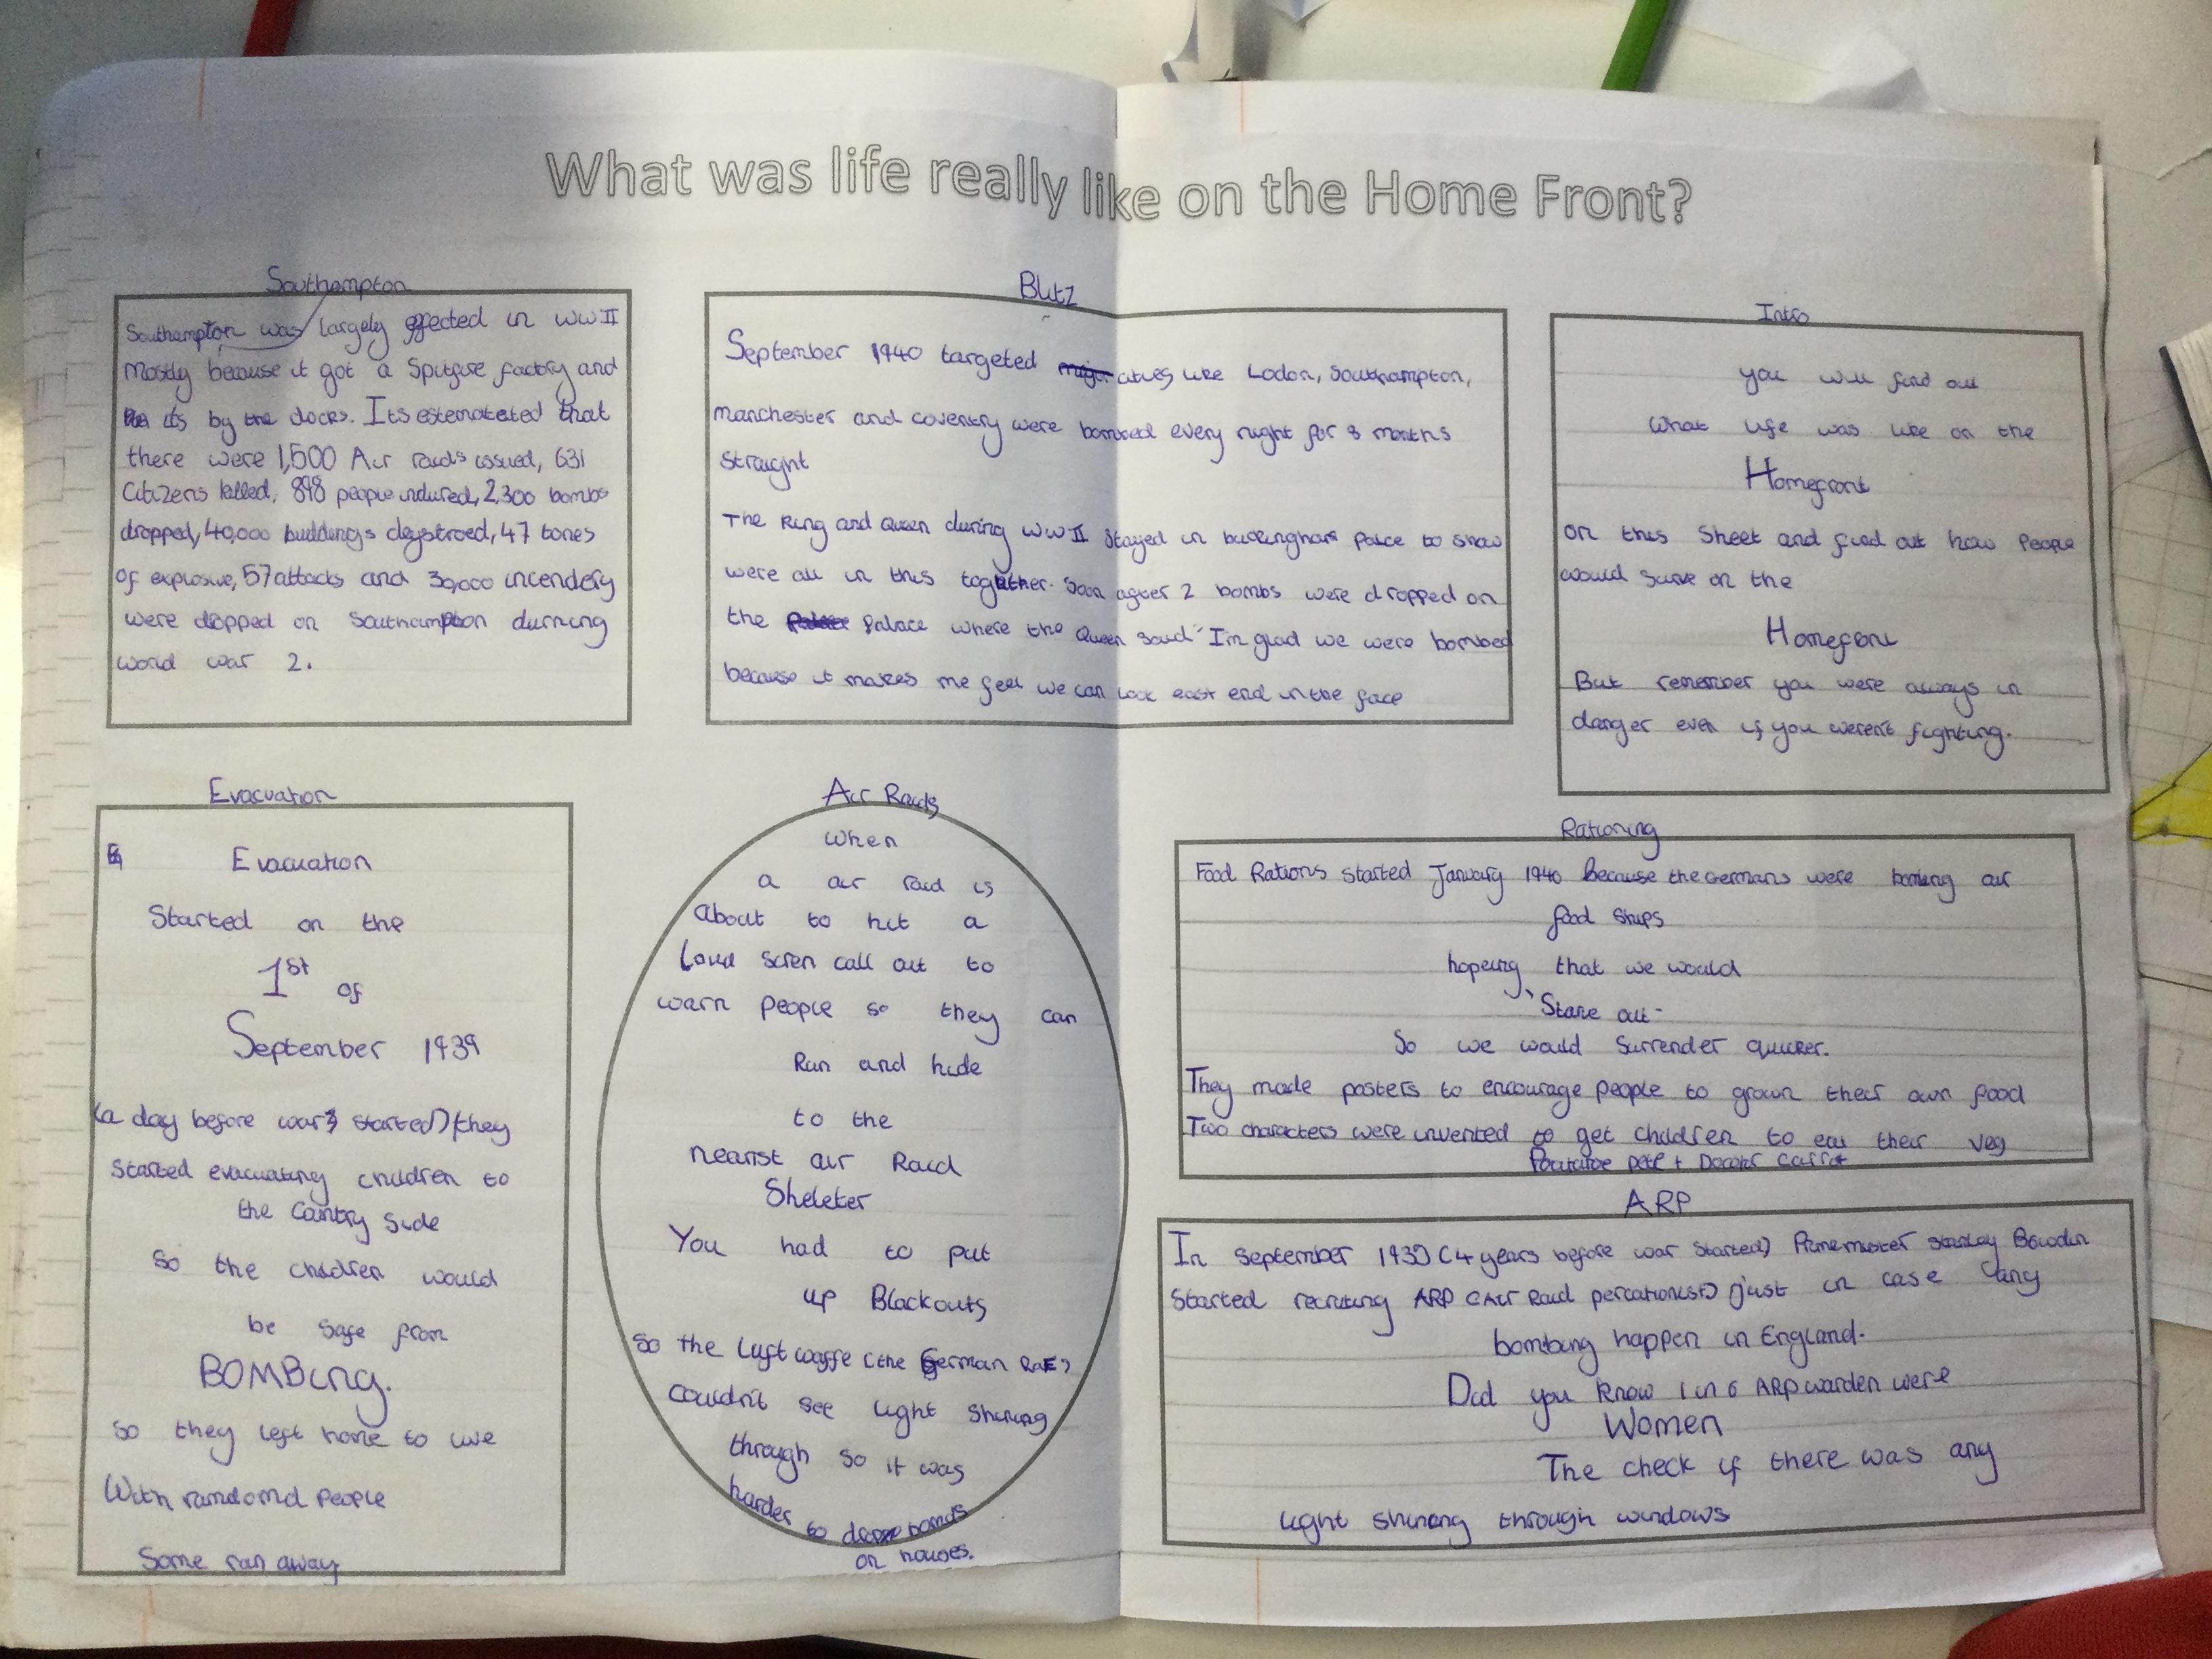 What was life really like on the Home Front?
Southampton
Southampton was largely effected in WWII
mostly because it got a Spitfire factory and
its by the docks. Its estemateted that
there were 1,500 Air raids issued, 631
Citizens killed, 898 people indured, 2,300 bombs
dropped, 40,000 buildings deystroed, 47 tones
of explosive, 57 attacks and 30,000 incendery
were dropped on Southampton durning
world war 2.
Blitz
September 1940 targeted cities like Lodon, Southampton,
manchester and coventry were bombed every night for 8 months
straight
The King and Queen during WWII stayed in buckingham Palce to show
were all in this together. Soon after 2 bombs were dropped on
the Palace where the Queen said "I'm glad we were bombed
because it makes me feel we can look east end in the face
Intro
you will find out
what life was like on the
Homefront
on this sheet and find out how people
would surve on the
Homefront
But remember you were always in
danger even if you weren't fighting.
Evacuation
Evacuation
Started on the
1st of
September 1939
(a day before war started) they
started evacuating children to
the Country side
so the children would
be safe from
BOMBing.
so they left home to live
With randomd people
Some ran away
Air Raids
When
a air raid is
about to hit a
Loud siren call out to
warn people so they can
Run and hide
to the
nearist air Raid
Sheleter
You had to put
up Blackouts
so the Luftwaffe (the German RAF)
couldn't see light shining
through so it was
harder to drope bombs
on houses.
Rationing
Food Rations started January 1940 because the Germans were bombing our
food ships
hopeing that we would
'Starve out'
So we would surrender quicker.
They made posters to encourage people to grown their own food
Two characters were invented to get children to eat their veg
Potatoe pete + Docotor carrot
ARP
In september 1935 (4 years before war started) Primemister stanley Bowdin
Started recruting ARP (Air Raid percationist) just in case any
bombing happen in England.
Did you know 1 in 6 ARP warden were
Women
The check if there was any
light shining through windows